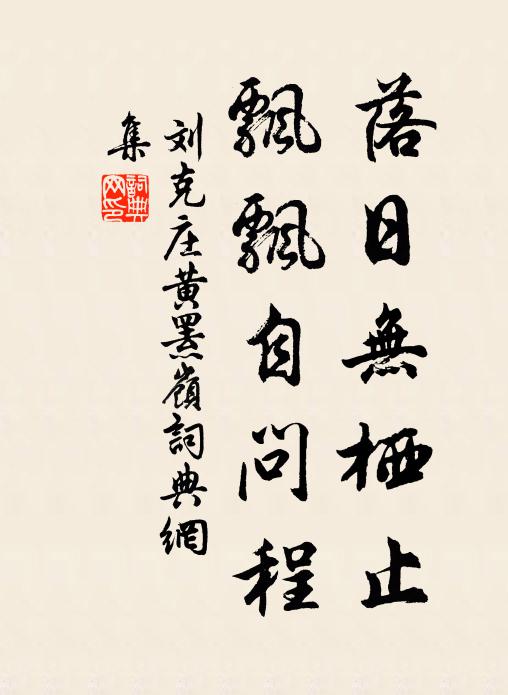 落日無栖止
飄飄自问程
刘克庄黄罴嶺詞典網
集
詞典網印